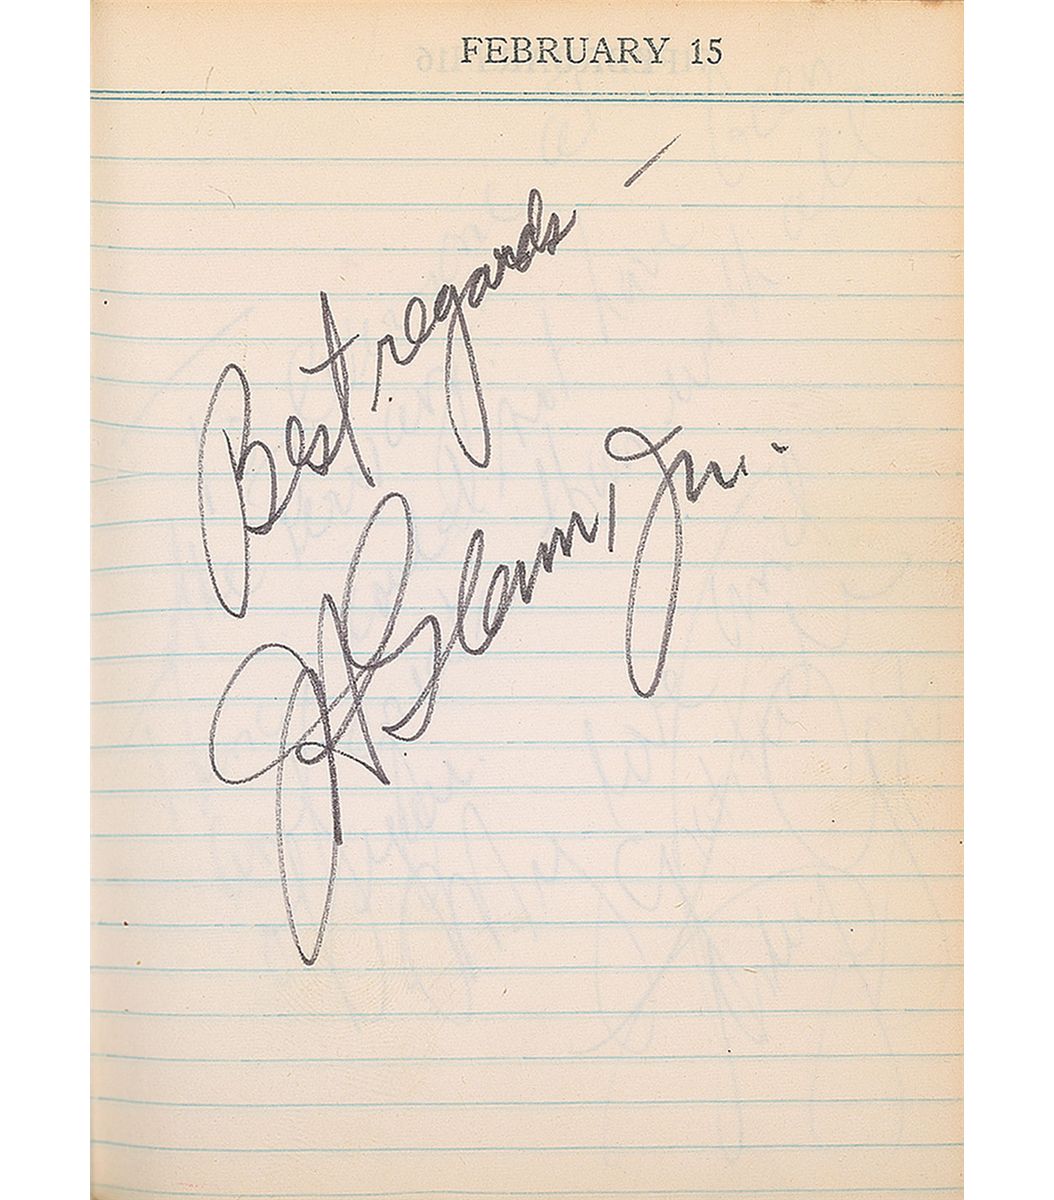 FEBRUARY 15
Best regards –
JHGlenn, Jr.